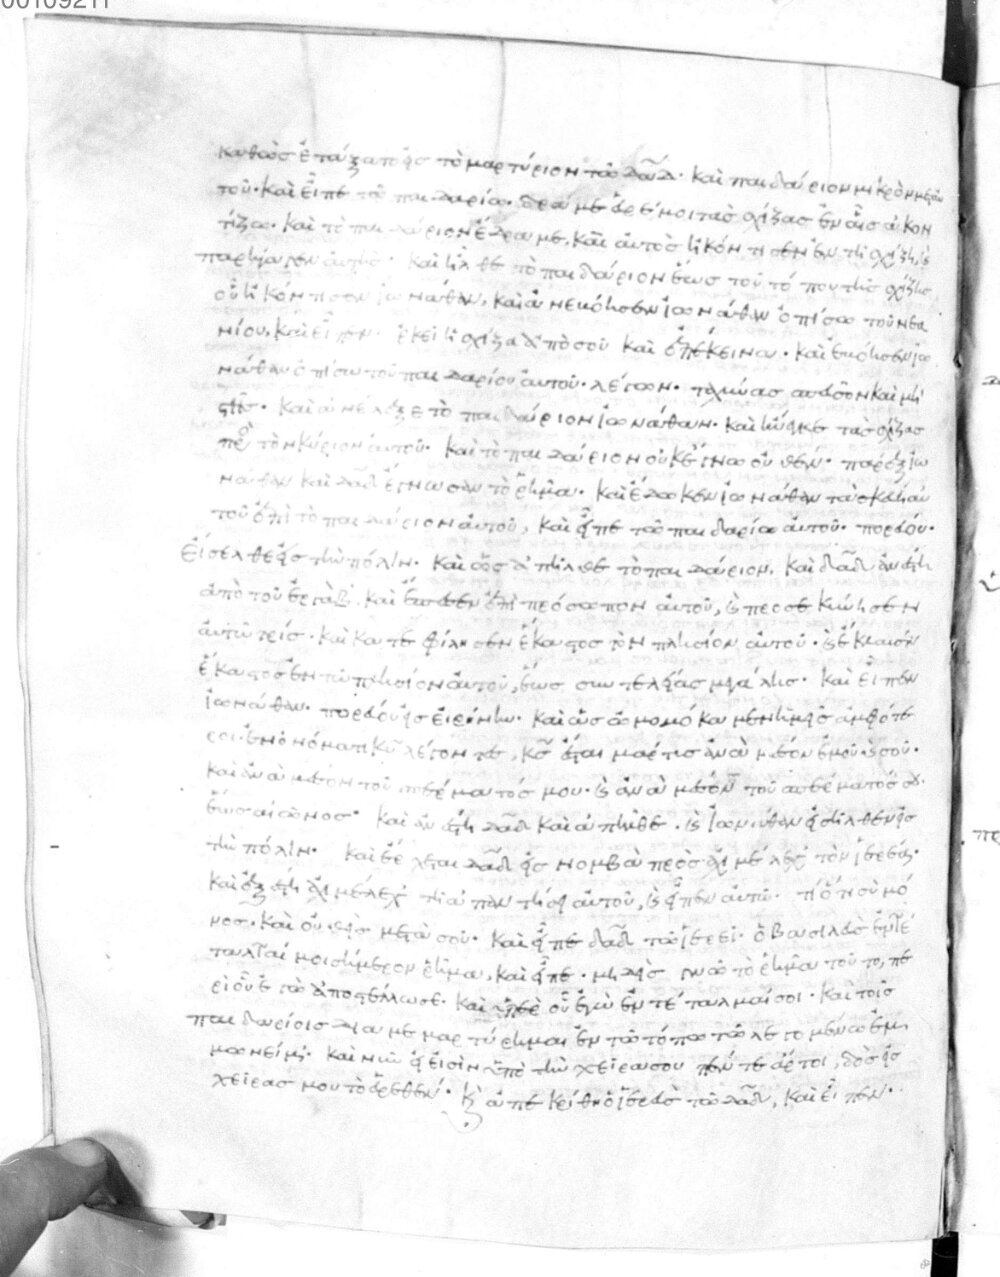 00109211
καθὼς ἐτάξατο εἰς τὸ μαρτύριον τῶ δᾱδ· καὶ παιδάριον μικρὸν μετ' αὐ
τοῦ· καὶ εἶπε τῶ παιδαρίω· δράμε εὑρέ μοι τὰς σχίζας ἐν αἷς ἀκον
τίζω· καὶ τὸ παιδάριον ἔδραμε, καὶ αὐτὸς ἠκόντισεν ἐν τῆ σχίζη, καὶ
παρήγαγεν αὐτῆς· καὶ ἦλθε τὸ παιδάριον ἕως τοῦ τόπου τῆς σχίζης
οὗ ἠκόντισεν ἰωνάθαν, καὶ ἀνεβόησεν ἰωνάθαν ὀπίσω τοῦ νεα
νίου, καὶ εἶπεν· ἐκεῖ ἡ σχίζα ἀπὸ σοῦ καὶ ἐπέκεινα· καὶ ἐβόησεν ἰω
νάθαν ὀπίσω τοῦ παιδαρίου αὐτοῦ· λέγων· ταχύνας σπεῦσον καὶ μὴ
στῆς· καὶ ἀνέλεξε τὸ παιδάριον ἰωνάθαν· καὶ ἤνεγκε τὰς σχίζας
πρὸς τὸν κύριον αὐτοῦ· καὶ τὸ παιδάριον οὐκ ἔγνω οὐθέν· παρὲξ ἰω
νάθαν καὶ δᾱδ ἔγνωσαν τὸ ῥῆμα· καὶ ἔδωκεν ἰωνάθαν τὰ σκεύη αὐ
τοῦ ἐπὶ τὸ παιδάριον αὐτοῦ, καὶ εἶπε τῶ παιδαρίω αὐτοῦ· πορεύου·
εἴσελθε εἰς τὴν πόλιν· καὶ ὡς ἀπῆλθε τὸ παιδάριον, καὶ δᾱδ ἀνέστη
ἀπὸ τοῦ ἐργὰβ, καὶ ἔπεσεν ἐπὶ πρόσωπον αὐτοῦ, καὶ προσεκύνησεν
αὐτῶ τρίς· καὶ κατεφίλησεν ἕκαστος τὸν πλησίον αὐτοῦ· καὶ ἔκλαυσεν
ἕκαστος ἐν τῶ πλησίον αὐτοῦ, ἕως συντελείας μεγάλης· καὶ εἶπεν
ἰωνάθαν· πορεύου εἰς εἰρήνην· καὶ ὡς ὀμωμόκαμεν ἡμεῖς ἀμφότε
ροι ἐν ὀνόματι κ̄υ λέγοντες, κ̄ς ἔσται μάρτυς ἀνὰ μέσον ἐμοῦ καὶ σοῦ·
καὶ ἀνὰ μέσον τοῦ σπέρματός μου· καὶ ἀνὰ μέσον τοῦ σπέρματός σου
ἕως αἰῶνος· καὶ ἀνέστη δᾱδ καὶ ἀπῆλθε· καὶ ἰωνάθαν εἰσῆλθεν εἰς
τὴν πόλιν· καὶ ἔρχεται δᾱδ εἰς νομβὰ πρὸς ἀχιμέλεχ τὸν ἱερέα·
καὶ ἐξέστη ἀχιμέλεχ τῆ ἀπαντήσει αὐτοῦ, καὶ εἶπεν αὐτῶ· τί ὅτι σὺ μό
νος· καὶ οὐδεὶς μετὰ σοῦ· καὶ εἶπε δᾱδ τῶ ἱερεῖ· ὁ βασιλεὺς ἐντέ
ταλταί μοι σήμερον ῥῆμα, καὶ εἶπε· μηδεὶς γνῶ τὸ ῥῆμα τοῦτο, πε
ρὶ οὗ ἐγὼ ἀποστέλλω σε· καὶ ὑπὲρ οὗ ἐγὼ ἐντέταλμαί σοι· καὶ τοῖς
παιδαρίοις διαμεμαρτύρημαι ἐν τῶ τόπω τῶ λεγομένω ἐμ
μωνείμ· καὶ νῦν εἰ εἰσὶν ὑπὸ τὴν χεῖρα σου πέντε ἄρτοι, δὸς εἰς
χεῖρας μου τὸ εὑρεθέν· καὶ ἀπεκρίθη ὁ ἱερεὺς τῶ δᾱδ, καὶ εἶπεν·